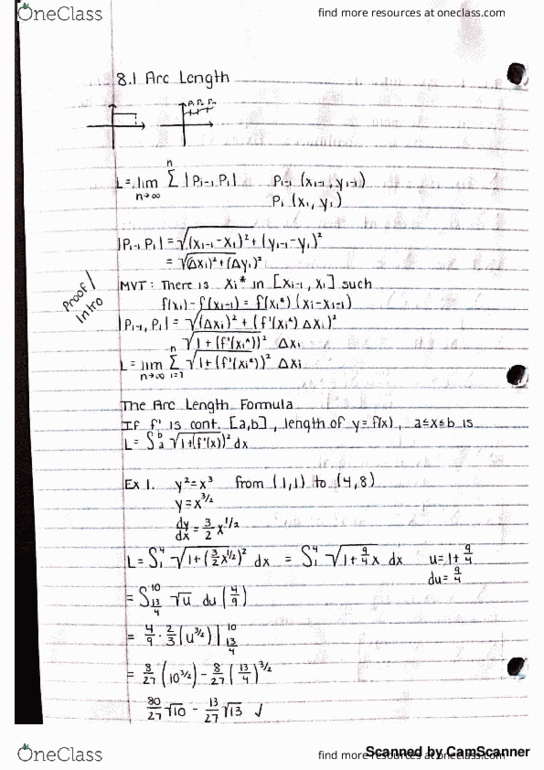 OneClass
find more resources at oneclass.com
8.1 Arc Length
L = lim n→∞ n Σ |Pi-1 Pi|   Pi-1 (xi-1, yi-1)
Pi (xi, yi)
|Pi-1 Pi| = √(xi-1 - xi)² + (yi-1 - yi)²
= √(Δxi)² + (Δyi)²
Proof / Intro
MVT: There is xi* in [xi-1, xi] such
f(xi) - f(xi-1) = f'(xi*) (xi - xi-1)
|Pi-1, Pi| = √(Δxi)² + (f'(xi*) Δxi)²
√1 + (f'(xi*))² Δxi
L = lim n→∞ n Σ i=1 √1 + (f'(xi*))² Δxi
The Arc Length Formula
If f' is cont. [a,b], length of y = f(x), a≤x≤b is
L = ∫ᵇₐ √1+(f'(x))² dx
Ex 1. y² = x³ from (1,1) to (4,8)
y = x^3/2
dy/dx = 3/2 x^1/2
L = ∫₁⁴ √1 + (3/2 x^1/2)² dx = ∫₁⁴ √1 + 9/4 x dx   u = 1 + 9/4
du = 9/4
= ∫ 13/4 10 √u du (4/9)
= 4/9 · 2/3 (u^3/2) | 10 13/4
= 8/27 (10^3/2) - 8/27 (13/4)^3/2
80/27 √10 - 13/27 √13 ✓
OneClass
find more resources at oneclass.com
Scanned by CamScanner